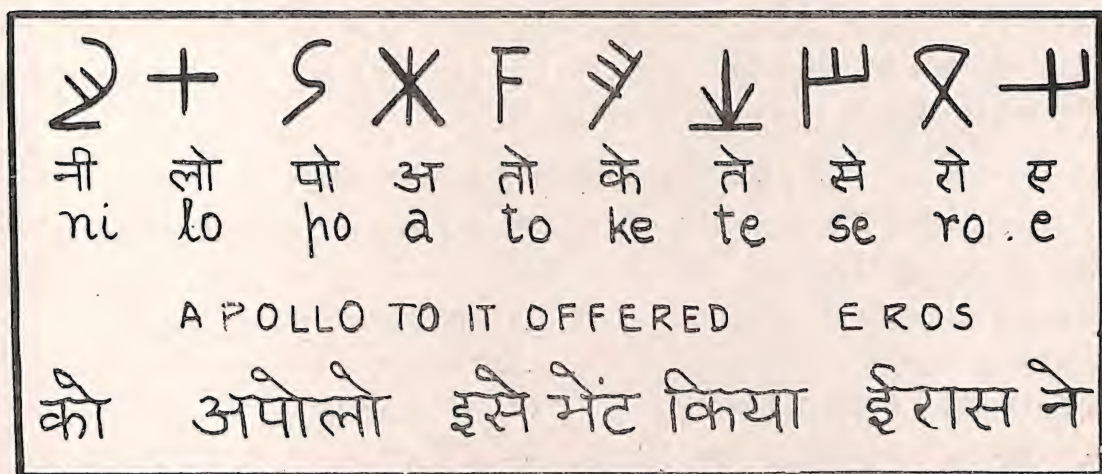 𐠛 𐠒 𐠡 𐠀 𐠰 𐠋 𐠮 𐠩 𐠦 𐠁
नी लो पो अ तो के ते से रो ए
ni lo po a to ke te se ro . e
APOLLO TO IT OFFERED EROS
को अपोलो इसे भेंट किया ईरास ने